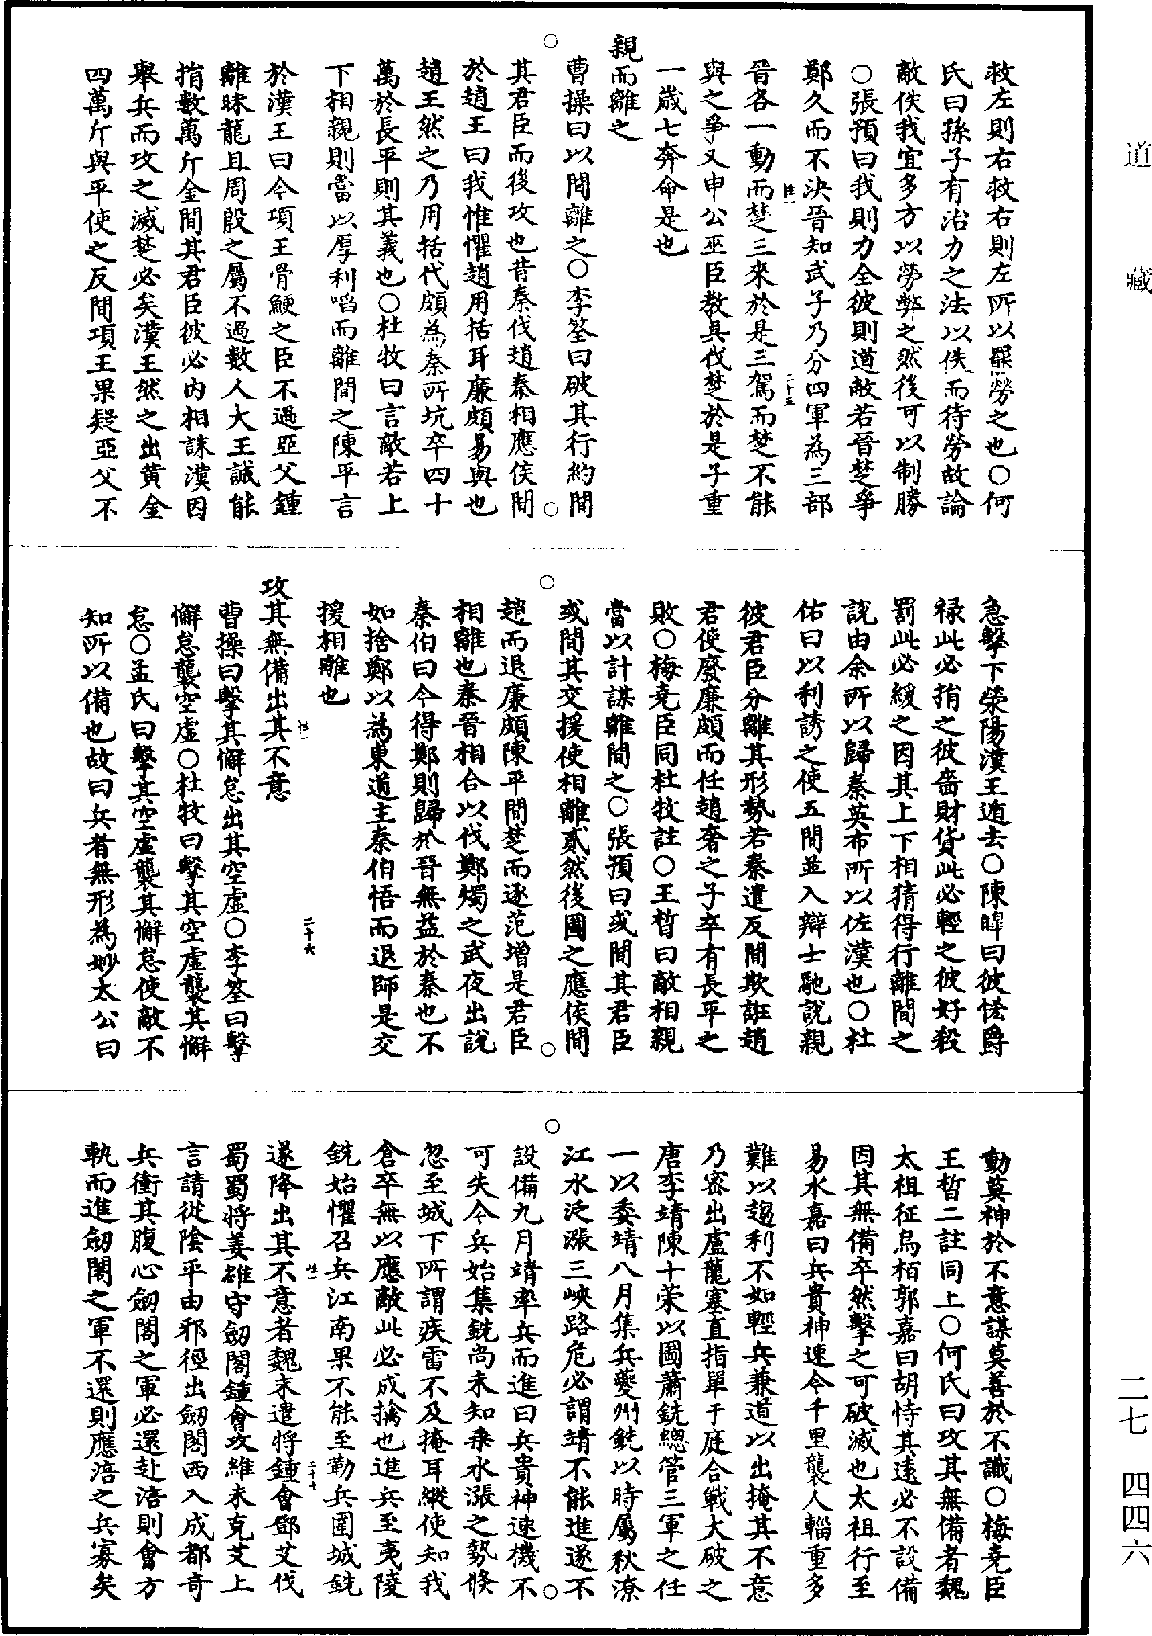 道藏
救左則右救右則左所以罷勞之也○何
氏曰孫子有治力之法以佚而待勞故論
敵佚我宜多方以勞弊之然後可以制勝
○張預曰我則力全彼則道敝若晉楚爭
鄭久而不決晉知武子乃分四軍為三部
晉各一動而楚三來於是三駕而楚不能
與之爭又申公巫臣教吳伐楚於是子重
一歲七奔命是也
親而離之
曹操曰以間離之○李筌曰破其行約間
其君臣而後攻也昔秦伐趙秦相應侯間
於趙王曰我惟懼趙用括耳廉頗易與也
趙王然之乃用括代頗為秦所坑卒四十
萬於長平則其義也○杜牧曰言敵若上
下相親則當以厚利啗而離間之陳平言
於漢王曰今項王骨鯁之臣不過亞父鍾
離昧龍且周殷之屬不過數人大王誠能
捐數萬斤金間其君臣彼必內相誅漢因
舉兵而攻之滅楚必矣漢王然之出黃金
四萬斤與平使之反間項王果疑亞父不
急擊下滎陽漢王遁去○陳皥曰彼恡爵
祿此必捐之彼嗇財貨此必輕之彼好殺
罰此必緩之因其上下相猜得行離間之
說由余所以歸秦英布所以佐漢也○杜
佑曰以利誘之使五間並入辯士馳說親
彼君臣分離其形勢若秦遣反間欺誑趙
君使廢廉頗而任趙奢之子卒有長平之
敗○梅堯臣同杜牧註○王晳曰敵相親
當以計謀離間之○張預曰或間其君臣
或間其交援使相離貳然後圖之應侯間
趙而退廉頗陳平間楚而逐范增是君臣
相離也秦晉相合以伐鄭燭之武夜出說
秦伯曰今得鄭則歸於晉無益於秦也不
如捨鄭以為東道主秦伯悟而退師是交
援相離也
二十六
攻其無備出其不意
曹操曰擊其懈怠出其空虛○李筌曰擊
懈怠襲空虛○杜牧曰擊其空虛襲其懈
怠○孟氏曰擊其空虛襲其懈怠使敵不
知所以備也故曰兵者無形為妙太公曰
動莫神於不意謀莫善於不識○梅堯臣
王晳二註同上○何氏曰攻其無備者魏
太祖征烏桓郭嘉曰胡恃其遠必不設備
因其無備卒然擊之可破滅也太祖行至
易水嘉曰兵貴神速今千里襲人輜重多
難以趨利不如輕兵兼道以出掩其不意
乃密出盧龍塞直指單于庭合戰大破之
唐李靖陳十策以圖蕭銑總管三軍之任
一以委靖八月集兵夔州銑以時屬秋潦
江水泛漲三峽路危必謂靖不能進遂不
設備九月靖率兵而進曰兵貴神速機不
可失今兵始集銑尚未知乘水漲之勢倏
忽至城下所謂疾雷不及掩耳縱使知我
倉卒無以應敵此必成擒也進兵至夷陵
銑始懼召兵江南果不能至勒兵圍城銑
遂降出其不意者魏末遣將鍾會鄧艾伐
蜀蜀將姜維守劒閣鍾會攻維未克艾上
言請從陰平由邪徑出劒閣西入成都奇
兵衝其腹心劒閣之軍必還赴涪則會方
軌而進劒閣之軍不還則應涪之兵寡矣
二七 四四六